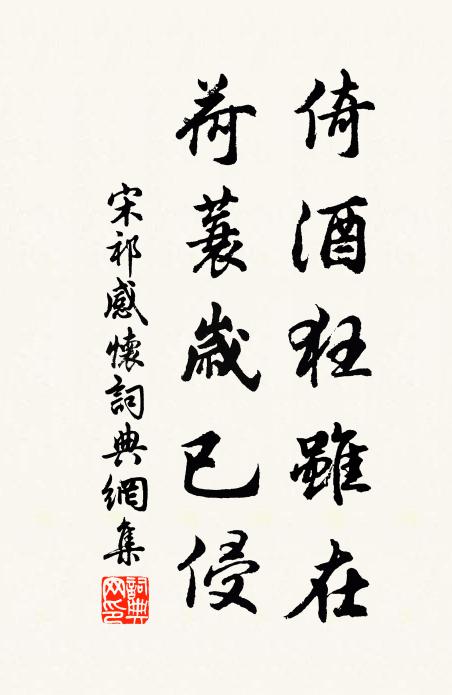 倚酒狂雖在
荷蓑歲已侵
宋祁感懷詞典網集
詞典網印